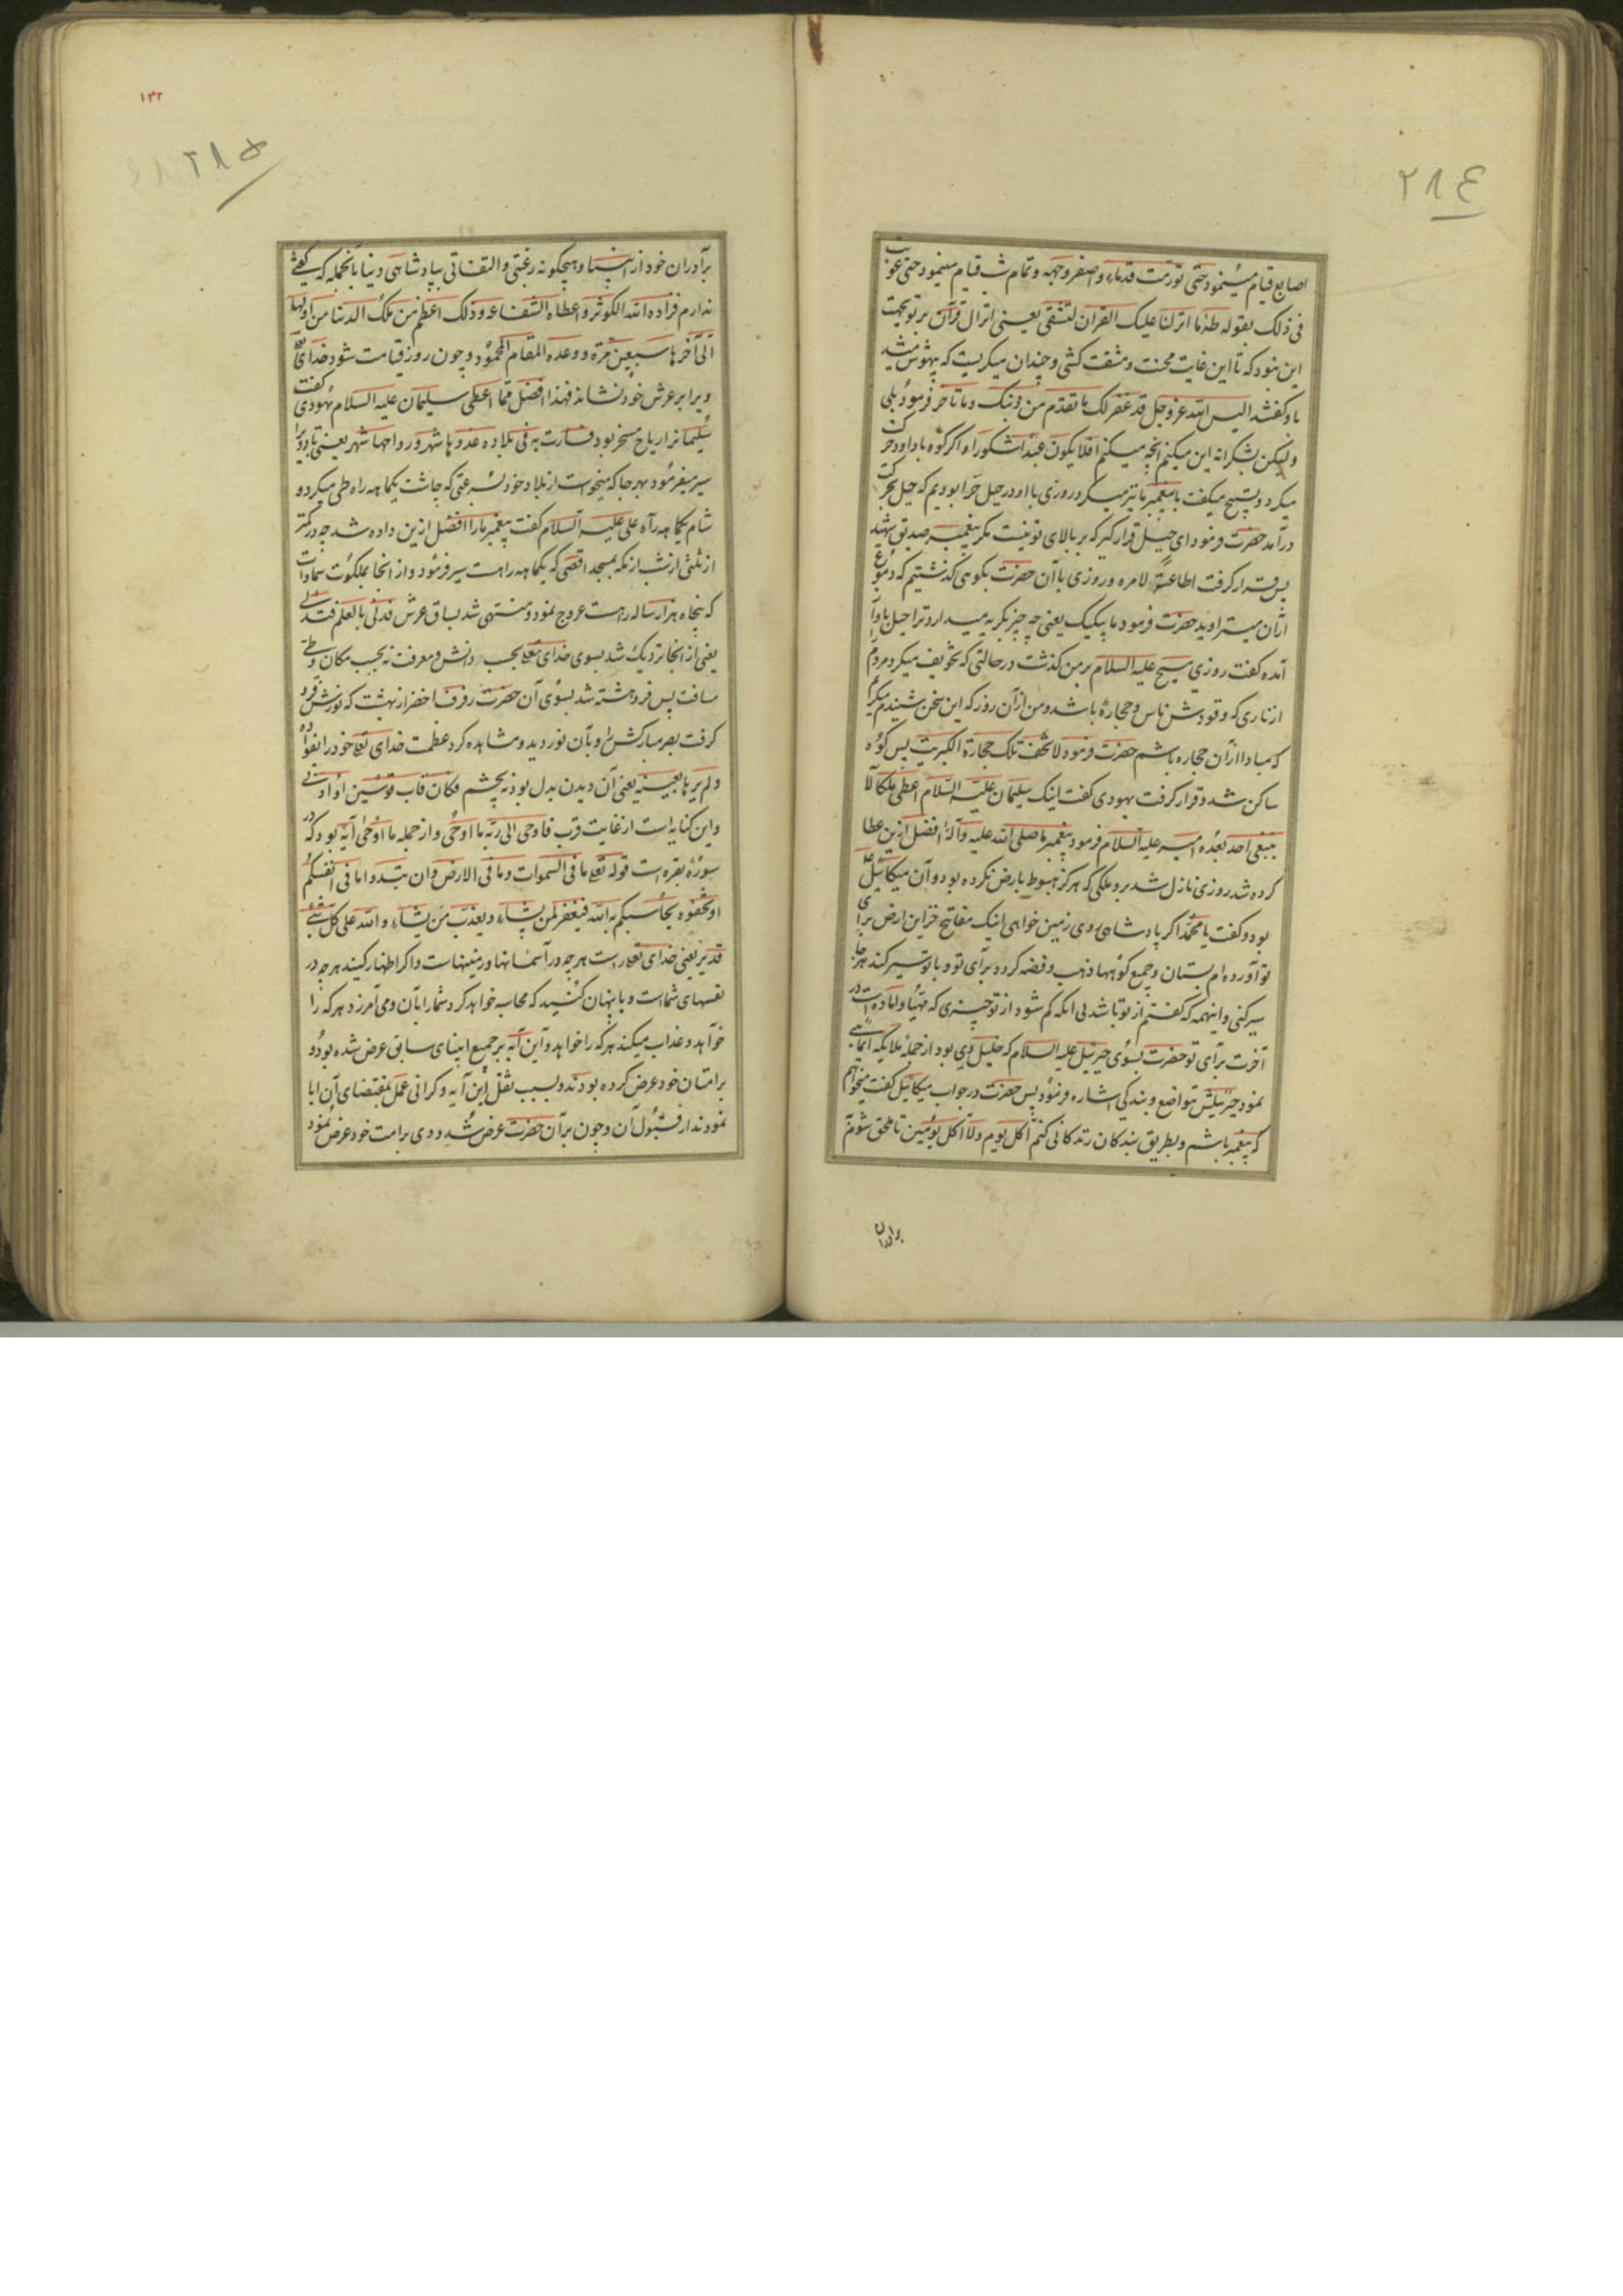 ٢٨٤
اصابع قیام مینمود حتی تورمت قدماه واصفر وجهه وتمام شب قیام مینمود حتی عوتب
فی ذلک بقوله طه ما انزلنا علیک القران لتشقی یعنی انزال قرآن بر تو بجهت
این نبود که تا این غایت محنت و مشقت کشی وچندان میکریست که بیهوش میشد
باو کفتند الیس الله عز وجل قد غفر لک ما تقدم من ذنبک وما تاخر فرمود بلی
ولیکن بشکرانه این میکنم انچه میکنم افلا یکون عبدا شکورا واکر کوه با داود حرکت
میکرد وتسبیح میکفت با پیغمبر ما نیز میکرد روزی با او در جبل حرا بودیم که جبل بحرکت
درآمد حضرت فرمود ای جبل قرار کیر که بر بالای تو نیست مکر پیغمبر صدیق شهید
پس قرار کرفت اطاعة لامره وروزی با آن حضرت بکوهی کذشتیم که دموع
ازان میتراوید حضرت فرمود ما یبکیک یعنی چه چیز بکریه میدارد ترا جبل باواز
آمده کفت روزی مسیح علیه السلام بر من کذشت در حالتی که تخویف میکرد مردم
از ناری که وقودش ناس وحجاره باشد ومن ازآن روز که این سخن شنیدم میکریم
که مبادا ازان حجاره باشم حضرت فرمود لا تخف تلک حجارة الکبریت پس کوه
ساکن شد وقرار کرفت یهودی کفت اینک سلیمان علیه السلام اعطی ملکا لا
ینبغی احد بعده امیر علیه السلام فرمود پیغمبر ما صلی الله علیه وآله افضل ازین عطا
کرده شد روزی نازل شد بر و ملکی که هرکز هبوط بارض نکرده بود وآن میکائیل
بود وکفت یا محمد اکر پادشاهی روی زمین خواهی اینک مفاتیح خزاین ارض برای
تو آورده ام بستان وجمیع کوهها ذهب وفضه کردد برای تو وبا تو سیر کند هر جا
سیر کنی واینهمه که کفتم از تو باشد بی انکه کم شود از تو چیزی که مهیا وآماده است در
آخرت برای تو حضرت بسوی جبرئیل علیه السلام که خلیل وی بود از جمله ملایکه
نمود جبرئیلش بتواضع وبندکی اشاره فرمود پس حضرت در جواب میکائیل کفت میخواهم
که پیغمبر باشم وبطریق بندکان زندکانی کنم آکل یوم ولا آکل یومین تا ملحق شوم
برادران
١٣٢
٢٨٥
برآدران خود از انبیا وهیچکونه رغبتی والتفاتی بپادشاهی دنیا بانجمله که کفتی
ندارم فزاده الله الکوثر واعطاه الشفاعه وذلک اعظم من ملک الدنیا من اولها
الی آخرها سبعین مرة ووعده المقام المحمود وچون روز قیامت شود خدای تعالی
ویرا بر عرش خود نشاند فهذا افضل مما اعطی سلیمان علیه السلام یهودی کفت
سلیمانرا ریاح مسخر بود فسارت به فی بلاده غدوها شهر ورواحها شهر یعنی باد ویرا
سیر میفرمود بهر جا که میخواست از بلاد خود بسرعتی که چاشت یکماهه راه طی میکرد و
شام یکماهه راه علی علیه السلام کفت پیغمبر مارا افضل ازین داده شد چه در کمتر
از ثلثی از شب از مکه بمسجد اقصی که یکماهه راهست سیر فرمود واز انجا بملکوت سماوات
که پنجاه هزار ساله راهست عروج نمود ومنتهی شد بساق عرش فدنی بالعلم فتدلی
یعنی از انجا نزدیک شد بسوی خدای تعالی بحسب دانش ومعرفت نه بحسب مکان وطی
مسافت پس فروهشته شد بسوی آن حضرت رفرفا خضر از بهشت که نورش فرو
کرفت بصر مبارکش را وبآن نور دید ومشاهده کرد عظمت خدای تعالی خود را بفواده
ولم یرها بعینه یعنی آن دیدن بدل بود نه بچشم فکان قاب قوسین او ادنی
واین کنایه است از غایت قرب فاوحی الی ربه ما اوحی واز جمله ما اوحی آیه بود که در
سوره بقره است قوله تعالی ما فی السموات وما فی الارض وان تبدوا ما فی انفسکم
او تخفوه یحاسبکم به الله فیغفر لمن یشاء ویعذب من یشاء والله علی کل شیء
قدیر یعنی خدای تعالی راست هر چه در آسمانها وزمینهاست واکر اظهار کنید هر چه در
نفسهای شماست ویا پنهان کنید که محاسبه خواهد کرد شمارا بآن ومی آمرزد هر که را
خواهد وعذاب میکند هر که را خواهد واین آیه بر جمیع انبیای سابق عرض شده بود و
بر امتان خود عرض کرده بودند وبسبب ثقل این آیه وکرانی عمل بمقتضای آن ابا
نمودند از قبول آن وچون بر آن حضرت عرض شد و وی بر امت خود عرض نمود